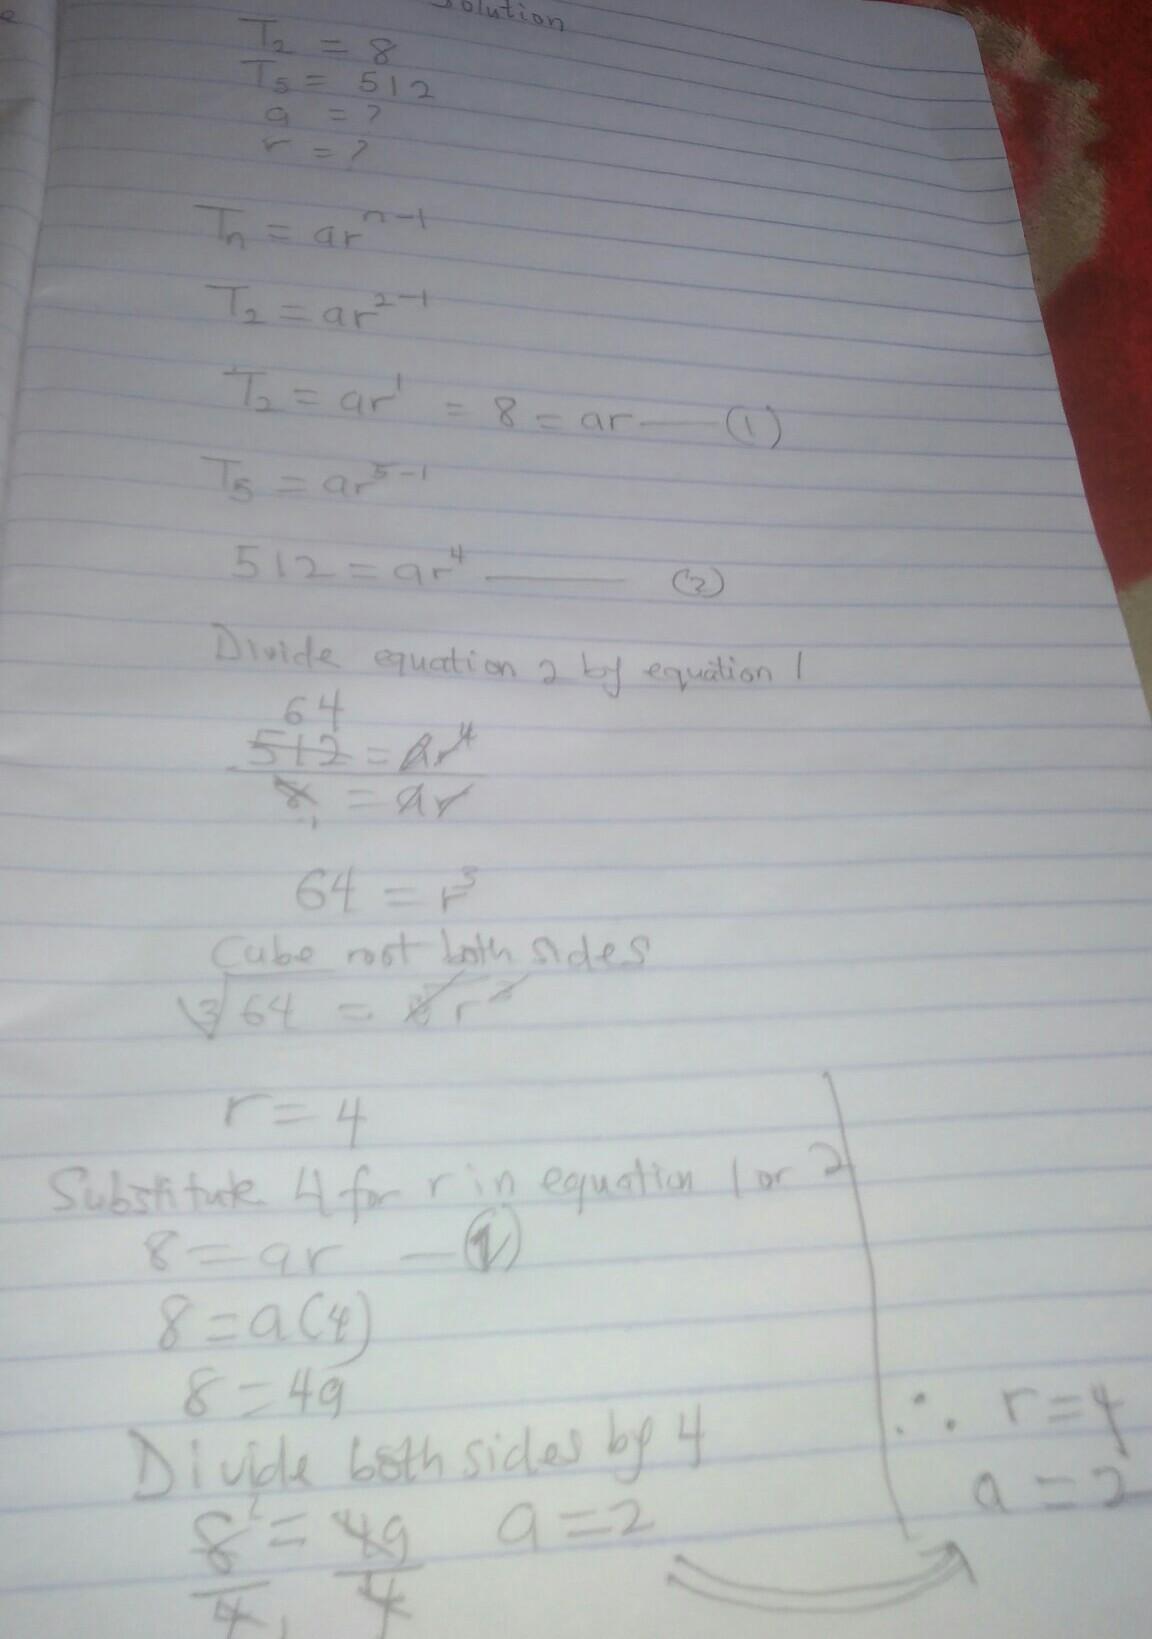 Solution
T₂ = 8
T₅ = 512
a = ?
r = ?
Tₙ = arⁿ⁻¹
T₂ = ar²⁻¹
T₂ = ar¹ = 8 = ar —— (1)
T₅ = ar⁵⁻¹
512 = ar⁴ ——— (2)
Divide equation 2 by equation 1
64
512 = ar⁴
8 = ar
1
64 = r³
Cube root both sides
∛64 = ∛r³
r = 4
Substitute 4 for r in equation 1 or 2
8 = ar — (1)
8 = a(4)
8 = 4a
Divide both sides by 4
8² = 4a a = 2
4₁ 4
∴ r = 4
a = 2